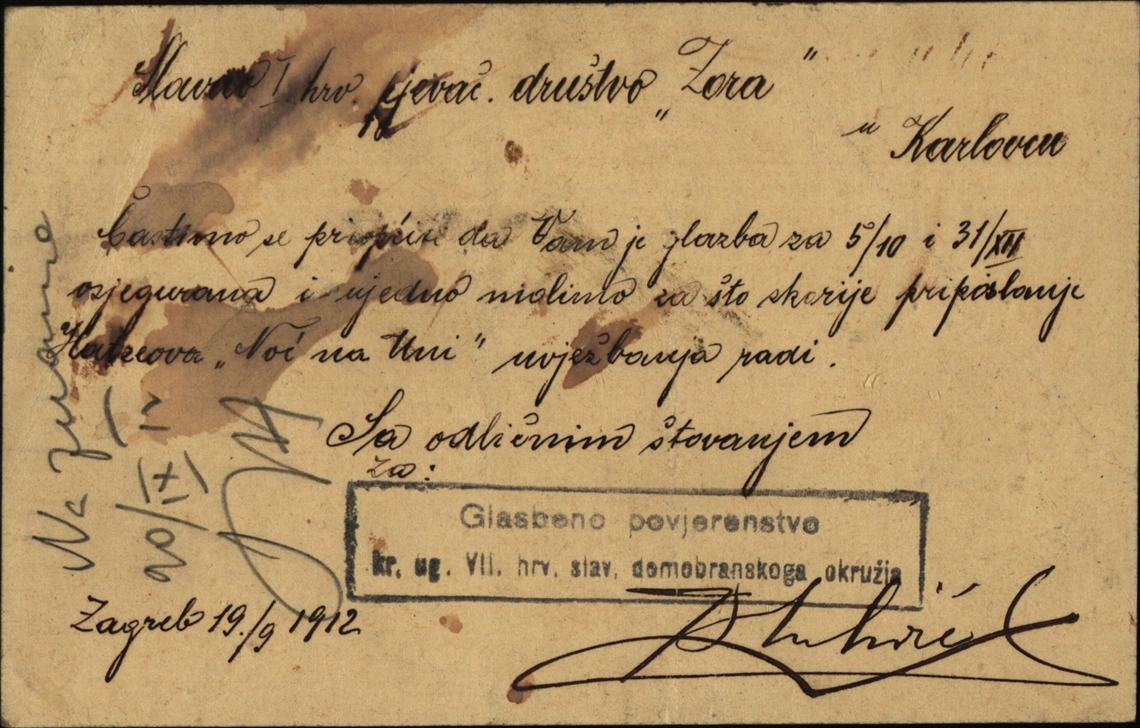 Slavno I. hrv. pjevač. društvo „Zora"
u Karlovcu
Častimo se priopćiti da Vam je glazba za 5/10 i 31/XII
osjegurana i ujedno molimo za što skorije pripóslanje
Hatzeova „Noć na Uni" uvježbanja radi.
Sa odličnim štovanjem
za:
Glasbeno povjerenstvo
kr. ug. VII. hrv. slav. domobranskoga okružja
Zagreb 19./9 1912
Na znanje
20/IX 12